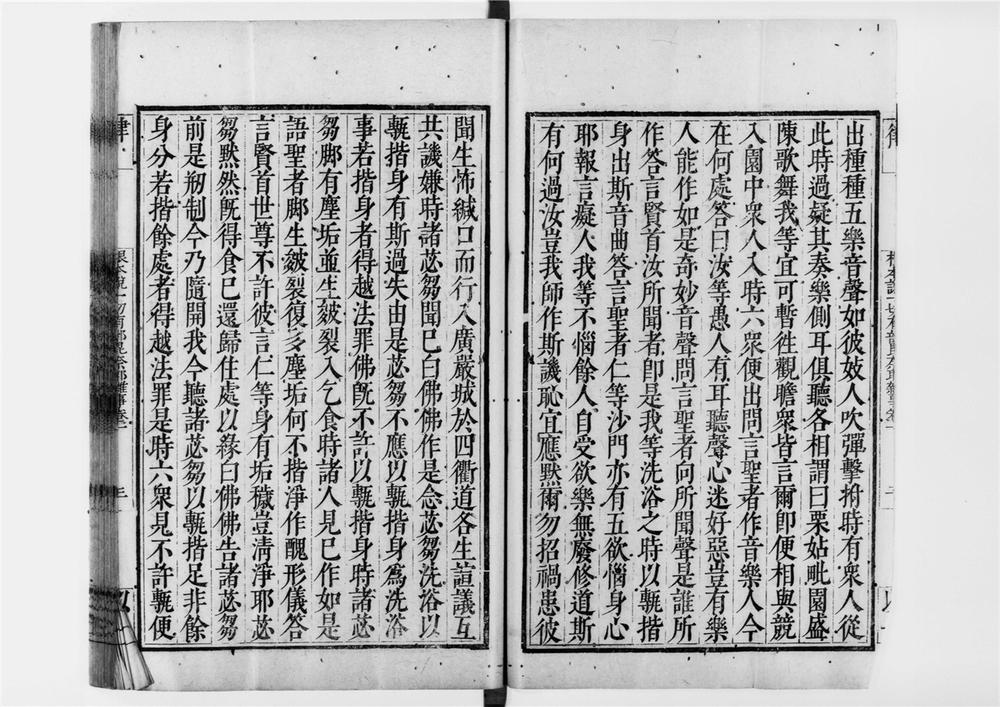 出種種五樂音聲如彼妓人吹彈擊拊時有衆人從
此時過疑其奏樂側耳俱聽各相謂曰栗姑毗園盛
陳歌舞我等宜可暫徃觀瞻衆皆言爾卽便相與競
入園中衆人入時六衆便出問言聖者作音樂人今
在何處答曰汝等愚人有耳聽聲心迷好惡豈有樂
人能作如是奇妙音聲問言聖者向所聞聲是誰所
作答言賢首汝所聞者卽是我等洗浴之時以甎揩
身出斯音曲答言聖者仁等沙門亦有五欲惱身心
耶報言癡人我等不惱餘人自受欲樂無廢修道斯
有何過汝豈我師作斯譏恥宜應默爾勿招禍患彼
聞生怖緘口而行入廣嚴城於四衢道各生諠議互
共譏嫌時諸苾芻聞已白佛佛作是念苾芻洗浴以
甎揩身有斯過失由是苾芻不應以甎揩身爲洗浴
事若揩身者得越法罪佛旣不許以甎揩身時諸苾
芻脚有塵垢並生皴裂入乞食時諸人見已作如是
語聖者脚生皴裂復多塵垢何不揩淨作醜形儀答
言賢首世尊不許彼言仁等身有垢穢豈清淨耶苾
芻默然旣得食已還歸住處以緣白佛佛告諸苾芻
前是剏制今乃隨開我今聽諸苾芻以甎揩足非餘
身分若揩餘處者得越法罪是時六衆見不許甎便